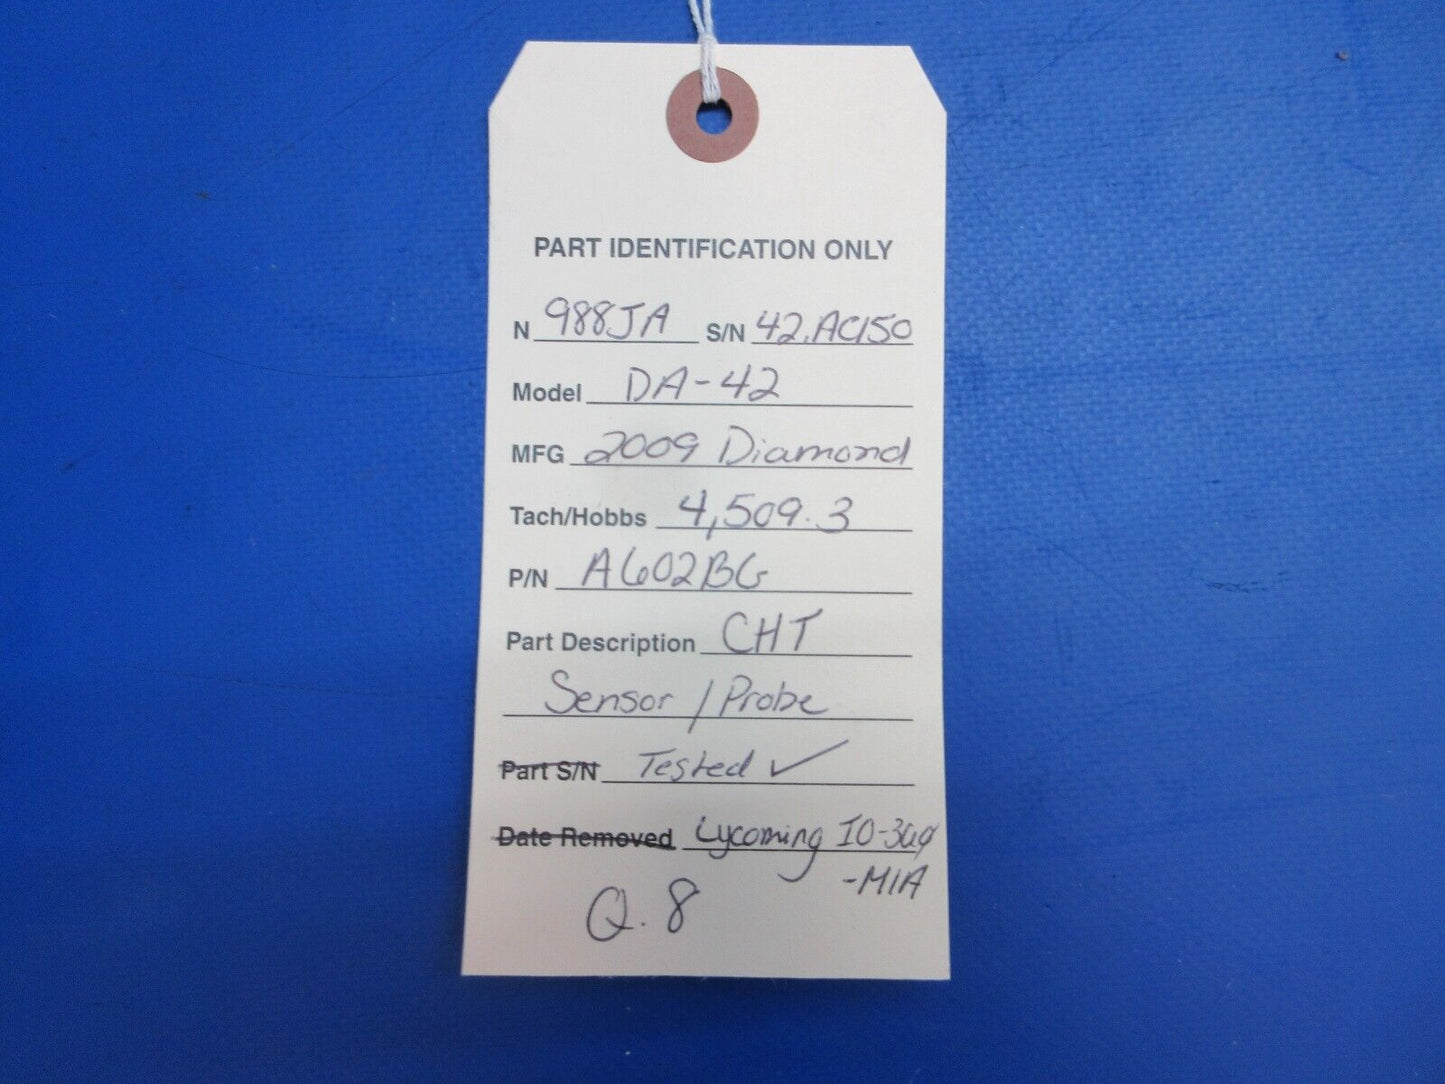 PART IDENTIFICATION ONLY
N 988JA S/N 42.AC150
Model DA-42
MFG 2009 Diamond
Tach/Hobbs 4,509.3
P/N A602BG
Part Description CHT
Sensor / Probe
Part S/N Tested ✓
Date Removed Lycoming IO-360
-M1A
Q.8